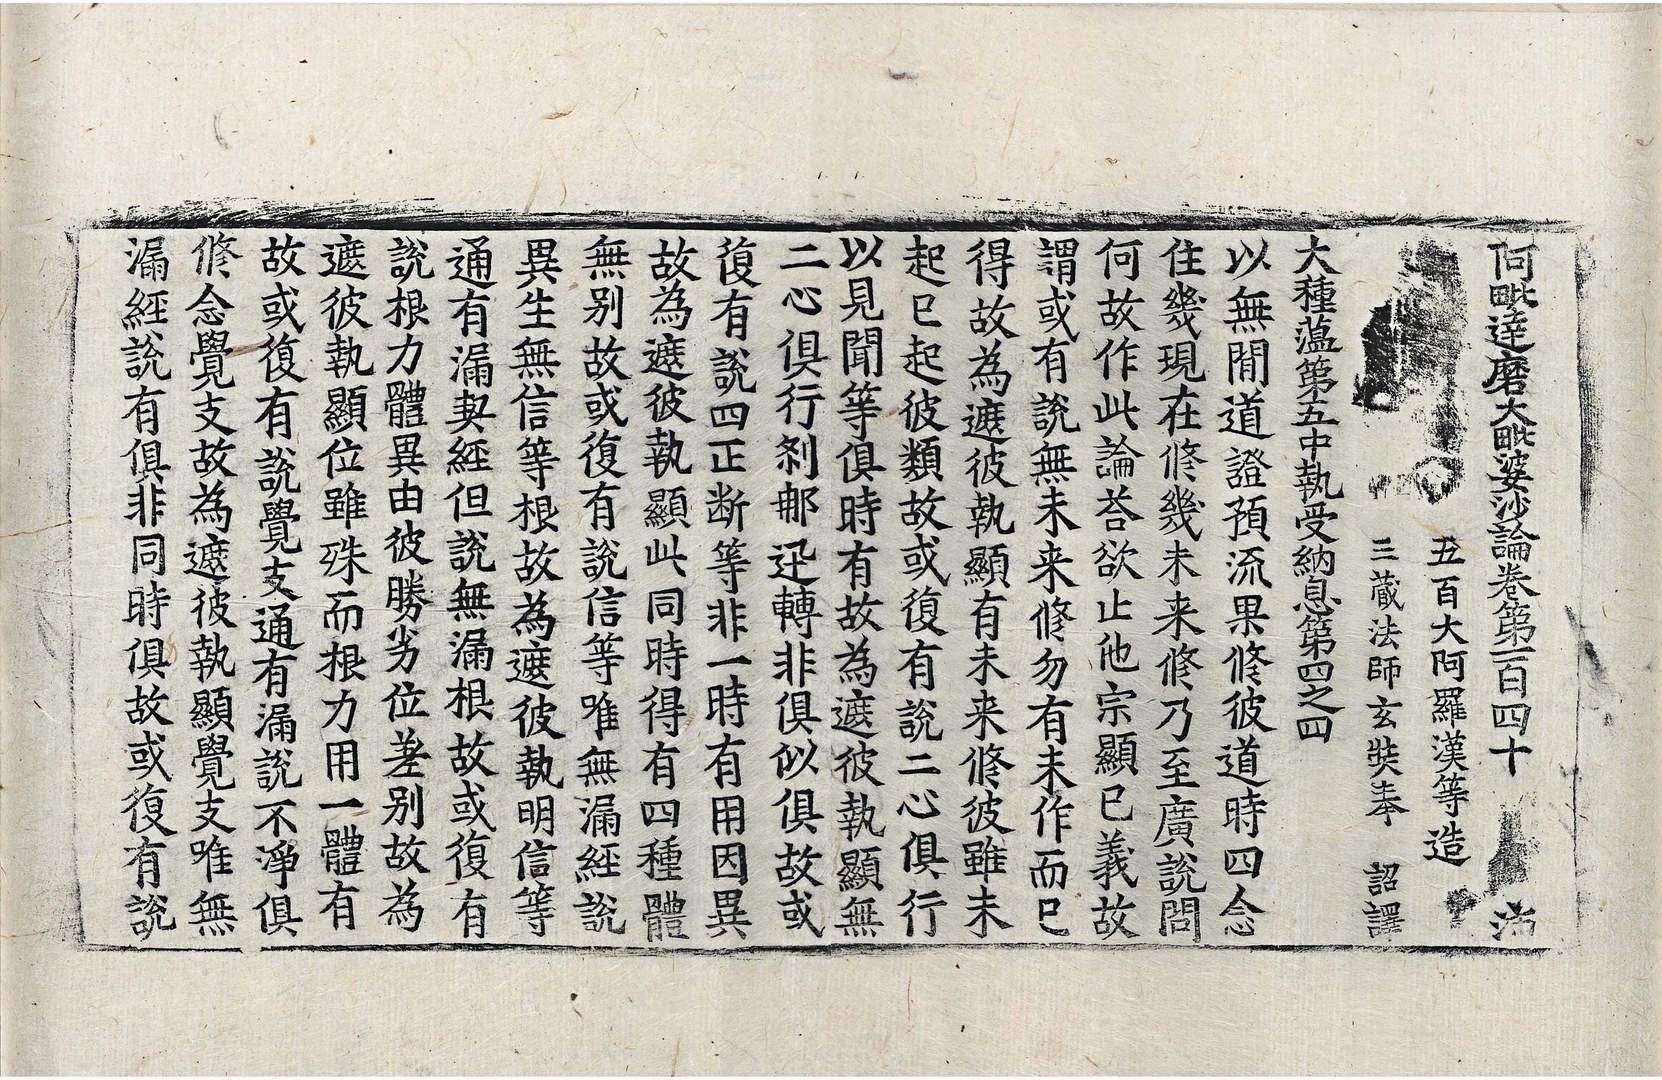 阿毗達磨大毗婆沙論卷第一百四十 滿
五百大阿羅漢等造
三藏法師玄奘奉 詔譯
大種蘊第五中執受納息第四之四
以無閒道證預流果修彼道時四念
住幾現在修幾未来修乃至廣說問
何故作此論荅欲止他宗顯已義故
謂或有說無未来修勿有未作而已
得故為遮彼執顯有未来修彼雖未
起已起彼類故或復有說二心俱行
以見聞等俱時有故為遮彼執顯無
二心俱行刹那迅轉非俱似俱故或
復有說四正断等非一時有用因異
故為遮彼執顯此同時得有四種體
無别故或復有說信等唯無漏經說
異生無信等根故為遮彼執明信等
通有漏契經但說無漏根故或復有
說根力體異由彼勝劣位差别故為
遮彼執顯位雖殊而根力用一體有
故或復有說覺支通有漏說不淨俱
修念覺支故為遮彼執顯覺支唯無
漏經說有俱非同時俱故或復有說